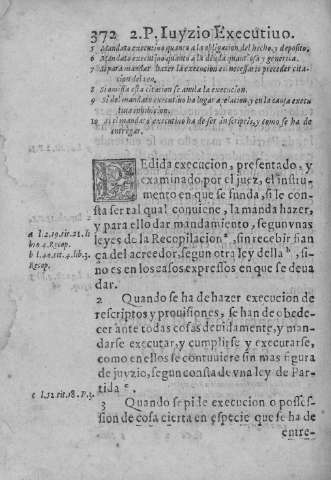 372 2.P. Iuyzio Executiuo.
5 Mandato executiuo quanto a la obligacion del hecho, y deposito.
6 Mandato executiuo quanto a la deuda quantiosa y generica.
7 Si para mandar hazer la execucion es necessario preceder cita-
cion del reo.
8 Si omissa esta citacion se anula la execucion.
9 Si del mandato executiuo ha lugar apelacion, y en la causa execu
tiua inhibicion.
10 Si el mandato executiuo ha de ser in scriptis, y como se ha de
entregar.
PEdida execucion, presentado, y
examinado por el juez, el instru-
mento en que se funda, si le con-
sta ser tal qual conuiene, la manda hazer,
y para ello dar mandamiento, segun vnas
leyes de la Recopilacion a, sin recebir fian
ça del acreedor, segun otra ley della b, si-
no es en los casos expressos en que se deua
dar.
a l.2.19.tit.21.li
bro 4. Recop.
b l.40.tit.4.lib.3.
Recop.
2 Quando se ha de hazer execucion de
rescriptos y prouisiones, se han de obede-
cer ante todas cosas deuidamente, y man-
darse executar, y cumplirse y executarse,
como en ellos se contuuiere sin mas figura
de juyzio, segun consta de vna ley de Par-
tida c.
c l.52.tit.18.P.3.
3 Quando se pide execucion o posses-
sion de cosa cierta en especie que se ha de
entre-